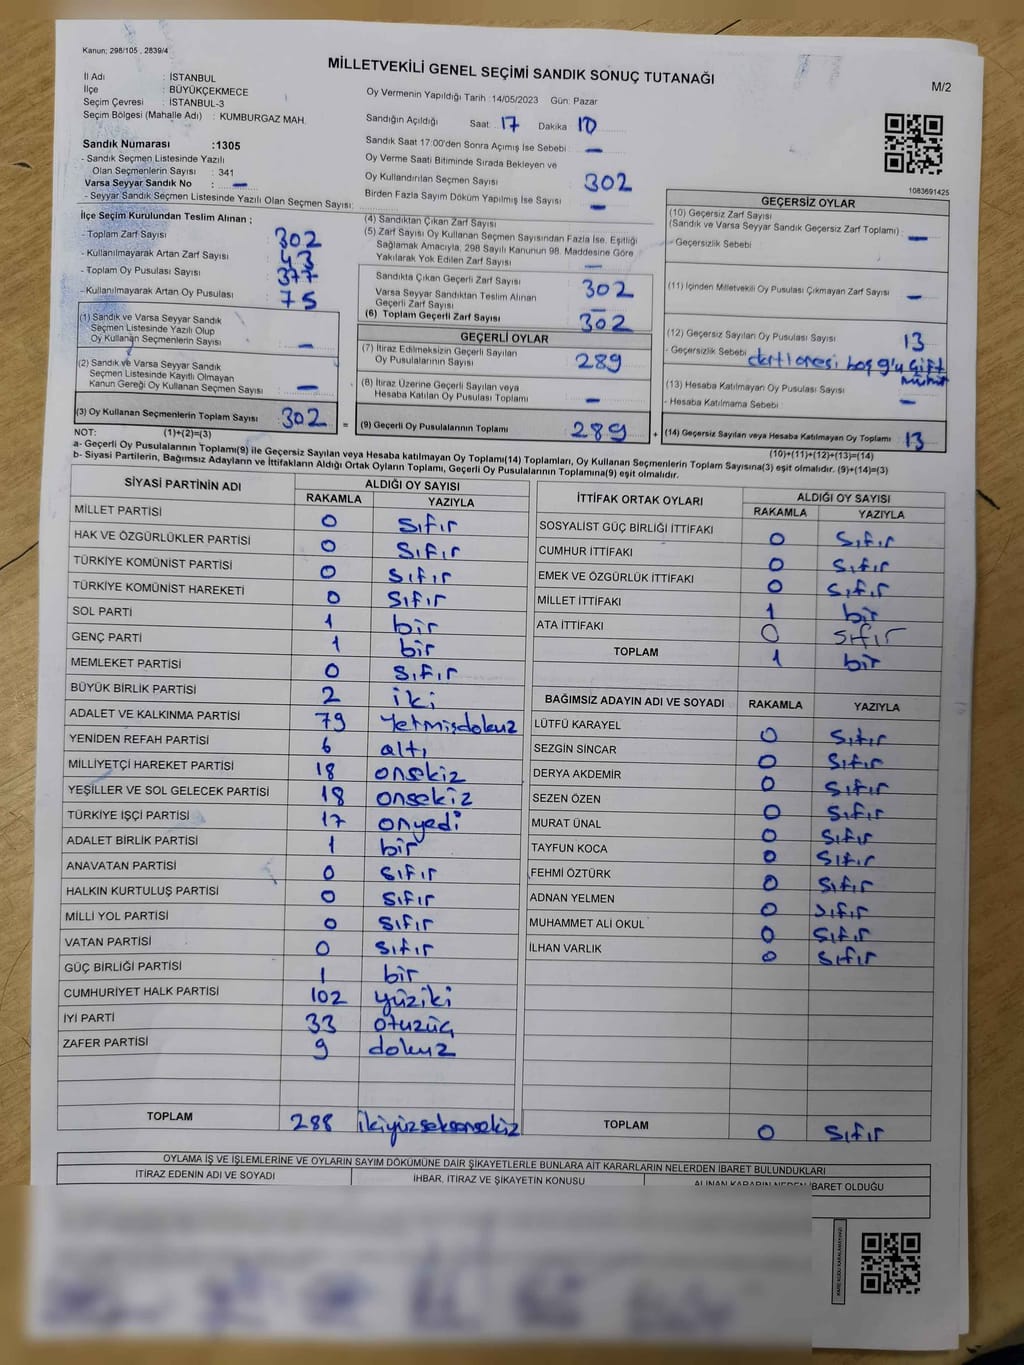 Kanun; 298/105 , 2839/4
MİLLETVEKİLİ GENEL SEÇİMİ SANDIK SONUÇ TUTANAĞI
M/2
İl Adı : İSTANBUL
İlçe : BÜYÜKÇEKMECE
Seçim Çevresi : İSTANBUL-3
Seçim Bölgesi (Mahalle Adı) : KUMBURGAZ MAH.
Oy Vermenin Yapıldığı Tarih :14/05/2023 Gün: Pazar
Sandığın Açıldığı Saat : 17 Dakika 10
Sandık Saat 17:00'den Sonra Açımış İse Sebebi : —
Oy Verme Saati Bitiminde Sırada Bekleyen ve
Oy Kullandırılan Seçmen Sayısı 302
Birden Fazla Sayım Döküm Yapılmış İse Sayısı : —
Sandık Numarası :1305
- Sandık Seçmen Listesinde Yazılı
Olan Seçmenlerin Sayısı : 341
Varsa Seyyar Sandık No : —
- Seyyar Sandık Seçmen Listesinde Yazılı Olan Seçmen Sayısı:
1083691425
İlçe Seçim Kurulundan Teslim Alınan ;
- Toplam Zarf Sayısı 302
- Kullanılmayarak Artan Zarf Sayısı : 43
- Toplam Oy Pusulası Sayısı 377
- Kullanılmayarak Artan Oy Pusulası 75
(1) Sandık ve Varsa Seyyar Sandık
Seçmen Listesinde Yazılı Olup
Oy Kullanan Seçmenlerin Sayısı : —
(2) Sandık ve Varsa Seyyar Sandık
Seçmen Listesinde Kayıtlı Olmayan
Kanun Gereği Oy Kullanan Seçmen Sayısı : —
(3) Oy Kullanan Seçmenlerin Toplam Sayısı 302 =
(4) Sandıktan Çıkan Zarf Sayısı
(5) Zarf Sayısı Oy Kullanan Seçmen Sayısından Fazla İse, Eşitliği
Sağlamak Amacıyla, 298 Sayılı Kanunun 98. Maddesine Göre
Yakılarak Yok Edilen Zarf Sayısı : —
Sandıkta Çıkan Geçerli Zarf Sayısı 302
Varsa Seyyar Sandıktan Teslim Alınan
Geçerli Zarf Sayısı —
(6) Toplam Geçerli Zarf Sayısı : 302
GEÇERLİ OYLAR
(7) İtiraz Edilmeksizin Geçerli Sayılan
Oy Pusulalarının Sayısı : 289
(8) İtiraz Üzerine Geçerli Sayılan veya
Hesaba Katılan Oy Pusulası Toplamı : —
(9) Geçerli Oy Pusulalarının Toplamı 289 +
GEÇERSİZ OYLAR
(10) Geçersiz Zarf Sayısı
(Sandık ve Varsa Seyyar Sandık Geçersiz Zarf Toplamı) : —
- Geçersizlik Sebebi :
(11) İçinden Milletvekili Oy Pusulası Çıkmayan Zarf Sayısı : —
(12) Geçersiz Sayılan Oy Pusulası Sayısı : 13
- Geçersizlik Sebebi boş 9'u çift
(13) Hesaba Katılmayan Oy Pusulası Sayısı : —
- Hesaba Katılmama Sebebi :
(14) Geçersiz Sayılan veya Hesaba Katılmayan Oy Toplamı : 13
NOT: (1)+(2)=(3) (10)+(11)+(12)+(13)=(14)
a- Geçerli Oy Pusulalarının Toplamı(9) ile Geçersiz Sayılan veya Hesaba katılmayan Oy Toplamı(14) Toplamları, Oy Kullanan Seçmenlerin Toplam Sayısına(3) eşit olmalıdır. (9)+(14)=(3)
b- Siyasi Partilerin, Bağımsız Adayların ve İttifakların Aldığı Ortak Oyların Toplamı, Geçerli Oy Pusulalarının Toplamına(9) eşit olmalıdır.
SİYASİ PARTİNİN ADI ALDIĞI OY SAYISI
RAKAMLA YAZIYLA
MİLLET PARTİSİ 0 sıfır
HAK VE ÖZGÜRLÜKLER PARTİSİ 0 sıfır
TÜRKİYE KOMÜNİST PARTİSİ 0 sıfır
TÜRKİYE KOMÜNİST HAREKETİ 0 sıfır
SOL PARTİ 1 bir
GENÇ PARTİ 1 bir
MEMLEKET PARTİSİ 0 sıfır
BÜYÜK BİRLİK PARTİSİ 2 iki
ADALET VE KALKINMA PARTİSİ 79 Yetmişdokuz
YENİDEN REFAH PARTİSİ 6 altı
MİLLİYETÇİ HAREKET PARTİSİ 18 onsekiz
YEŞİLLER VE SOL GELECEK PARTİSİ 18 onsekiz
TÜRKİYE İŞÇİ PARTİSİ 17 onyedi
ADALET BİRLİK PARTİSİ 1 bir
ANAVATAN PARTİSİ 0 sıfır
HALKIN KURTULUŞ PARTİSİ 0 sıfır
MİLLİ YOL PARTİSİ 0 sıfır
VATAN PARTİSİ 0 sıfır
GÜÇ BİRLİĞİ PARTİSİ 1 bir
CUMHURİYET HALK PARTİSİ 102 yüziki
İYİ PARTİ 33 otuzüç
ZAFER PARTİSİ 9 dokuz
TOPLAM 288 ikiyüzseksensekiz
İTTİFAK ORTAK OYLARI ALDIĞI OY SAYISI
RAKAMLA YAZIYLA
SOSYALİST GÜÇ BİRLİĞİ İTTİFAKI 0 sıfır
CUMHUR İTTİFAKI 0 sıfır
EMEK VE ÖZGÜRLÜK İTTİFAKI 0 sıfır
MİLLET İTTİFAKI 1 bir
ATA İTTİFAKI 0 sıfır
TOPLAM 1 bir
BAĞIMSIZ ADAYIN ADI VE SOYADI RAKAMLA YAZIYLA
LÜTFÜ KARAYEL 0 sıfır
SEZGİN SİNCAR 0 sıfır
DERYA AKDEMİR 0 sıfır
SEZEN ÖZEN 0 sıfır
MURAT ÜNAL 0 sıfır
TAYFUN KOCA 0 sıfır
FEHMİ ÖZTÜRK 0 sıfır
ADNAN YELMEN 0 sıfır
MUHAMMET ALİ OKUL 0 sıfır
İLHAN VARLIK 0 sıfır
TOPLAM 0 sıfır
OYLAMA İŞ VE İŞLEMLERİNE VE OYLARIN SAYIM DÖKÜMÜNE DAİR ŞİKAYETLERLE BUNLARA AİT KARARLARIN NELERDEN İBARET BULUNDUKLARI
İTİRAZ EDENİN ADI VE SOYADI İHBAR, İTİRAZ VE ŞİKAYETİN KONUSU ALINAN KARARIN NEDEN İBARET OLDUĞU